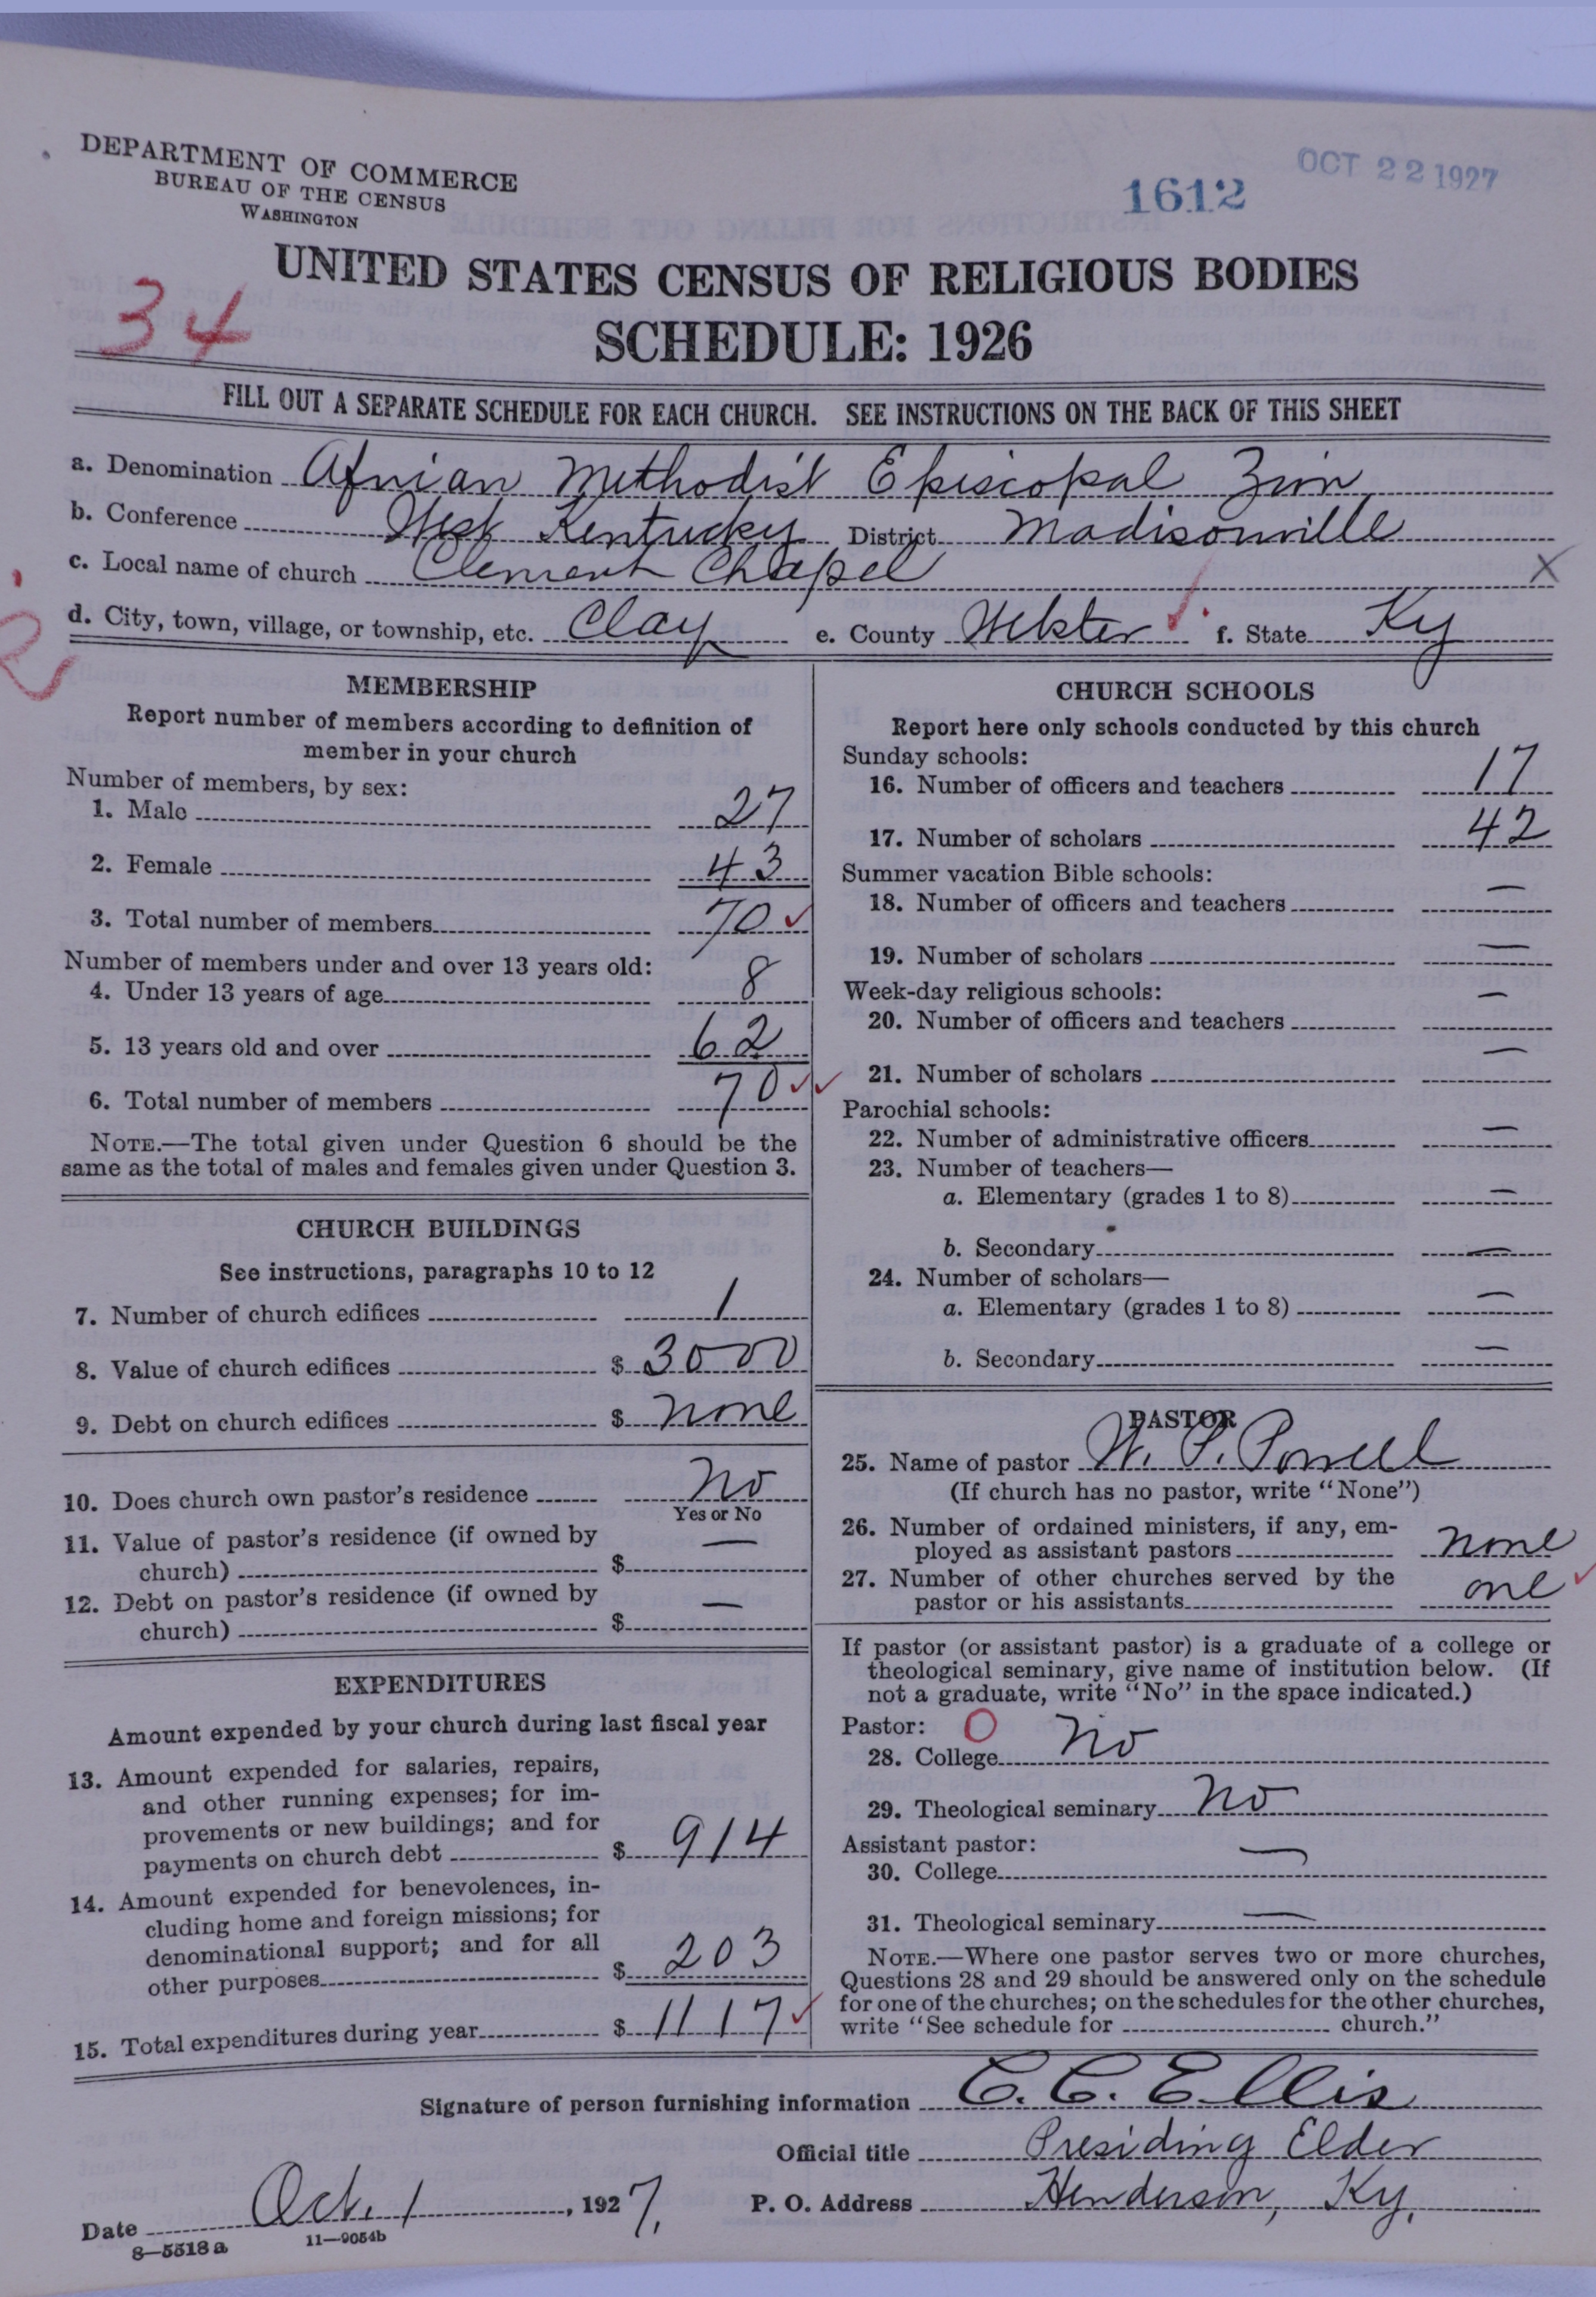 DEPARTMENT OF COMMERCE
BUREAU OF THE CENSUS
WASHINGTON
1612
OCT 22 1927
34
UNITED STATES CENSUS OF RELIGIOUS BODIES
SCHEDULE: 1926
FILL OUT A SEPARATE SCHEDULE FOR EACH CHURCH. SEE INSTRUCTIONS ON THE BACK OF THIS SHEET
a. Denomination African Methodist Episcopal Zion
b. Conference West Kentucky District Madisonville
c. Local name of church Clement Chapel X
d. City, town, village, or township, etc. Clay e. County Webster f. State Ky
MEMBERSHIP
Report number of members according to definition of
member in your church
Number of members, by sex:
1. Male 27
2. Female 43
3. Total number of members 70
Number of members under and over 13 years old:
4. Under 13 years of age 8
5. 13 years old and over 62
6. Total number of members 70
NOTE.—The total given under Question 6 should be the
same as the total of males and females given under Question 3.
CHURCH BUILDINGS
See instructions, paragraphs 10 to 12
7. Number of church edifices 1
8. Value of church edifices $ 3000
9. Debt on church edifices $ none
10. Does church own pastor's residence No
Yes or No
11. Value of pastor's residence (if owned by
church) $ —
12. Debt on pastor's residence (if owned by
church) $ —
EXPENDITURES
Amount expended by your church during last fiscal year
13. Amount expended for salaries, repairs,
and other running expenses; for im-
provements or new buildings; and for
payments on church debt $ 914
14. Amount expended for benevolences, in-
cluding home and foreign missions; for
denominational support; and for all
other purposes $ 203
15. Total expenditures during year $ 1117
CHURCH SCHOOLS
Report here only schools conducted by this church
Sunday schools:
16. Number of officers and teachers 17
17. Number of scholars 42
Summer vacation Bible schools:
18. Number of officers and teachers —
19. Number of scholars —
Week-day religious schools:
20. Number of officers and teachers —
21. Number of scholars —
Parochial schools:
22. Number of administrative officers —
23. Number of teachers—
a. Elementary (grades 1 to 8) —
b. Secondary —
24. Number of scholars—
a. Elementary (grades 1 to 8) —
b. Secondary —
PASTOR
25. Name of pastor W. P. Powell
(If church has no pastor, write "None")
26. Number of ordained ministers, if any, em-
ployed as assistant pastors none
27. Number of other churches served by the
pastor or his assistants one
If pastor (or assistant pastor) is a graduate of a college or
theological seminary, give name of institution below. (If
not a graduate, write "No" in the space indicated.)
Pastor: O
28. College No
29. Theological seminary No
Assistant pastor:
30. College —
31. Theological seminary —
NOTE.—Where one pastor serves two or more churches,
Questions 28 and 29 should be answered only on the schedule
for one of the churches; on the schedules for the other churches,
write "See schedule for church."
Signature of person furnishing information C. C. Ellis
Official title Presiding Elder
Date Oct. 1, 1927. P. O. Address Henderson, Ky.
8—5518a 11—9054b